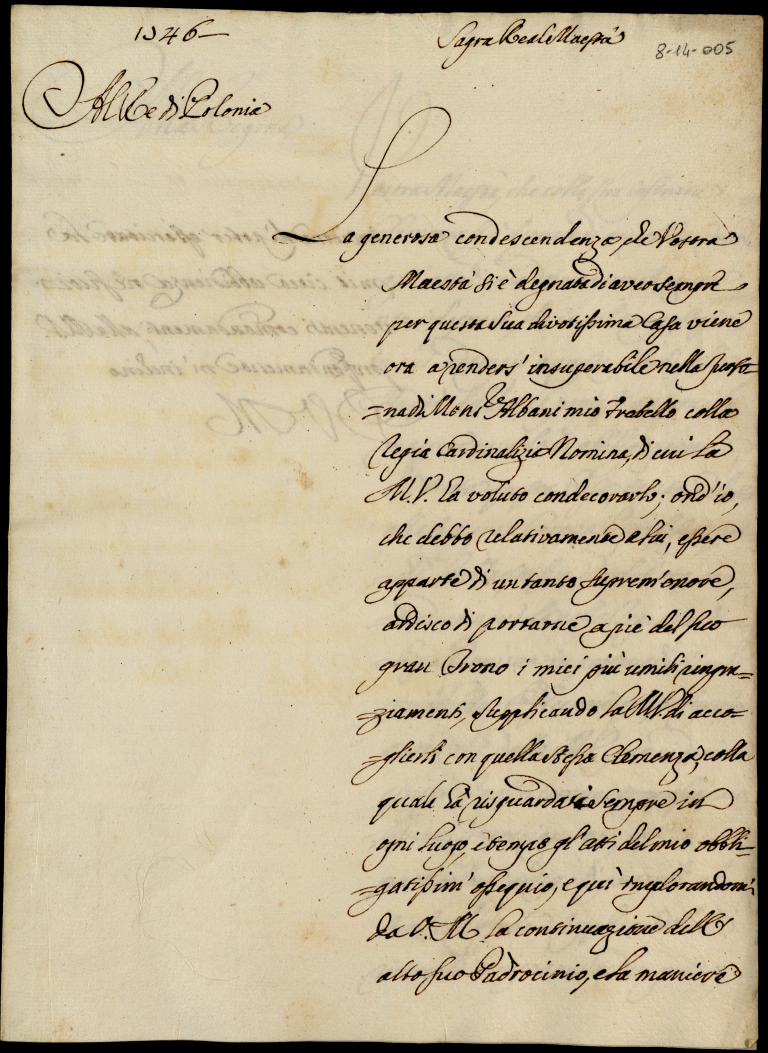 1746
Sagra Real Maestà
8-14-005
Al Re di Polonia
La generosa condescendenza, che Vostra
Maestà si è degnata di aver sempre
per questa sua divotissima Casa viene
ora a renders' insuperabile nella perso=
=na di Mons.re Albani mio Fratello colla
Regia Cardinalizia Nomina, di cui La
M.V. hà voluto condecorarlo; ond'io,
che debbo relativamente a lui, essere
apparte di un tanto suprem'onore,
ardisco di portarne a piè del suo
gran Trono i miei più umili ringra=
=ziamenti, supplicando La M.V. di acco=
=glierli con quella stessa Clemenza, colla
quale hà risguardati sempre in
ogni luogo, e tempo gl'atti del mio obbli=
=gatissim' ossequio, e quì implorandomi
da V. M. La continuazione dell'
alto suo Padrocinio, e la maniere